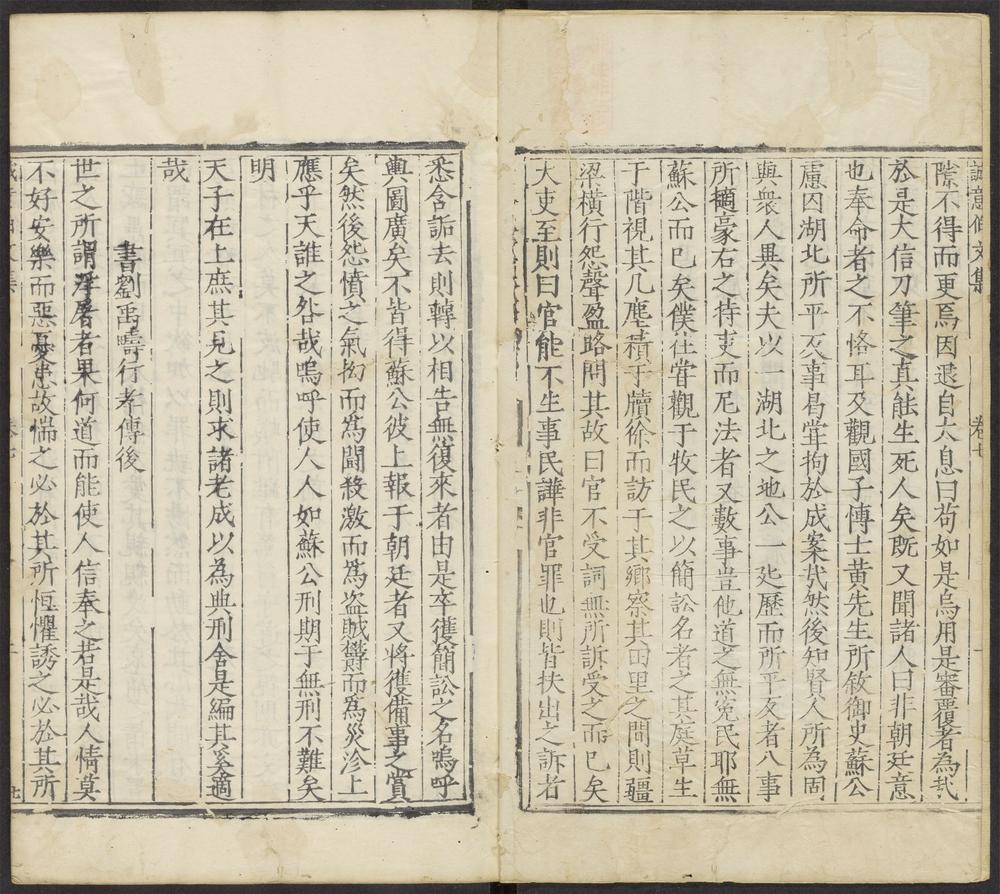 誠意伯文集 卷七
隙不得而更焉因退自大息曰苟如是烏用是審覆者為哉
於是大信刀筆之真能生死人矣既又聞諸人曰非朝廷意
也奉命者之不恪耳及觀國子博士黃先生所敘御史蘇公
慮囚湖北所平反事曷嘗拘於成案哉然後知賢人所為固
與衆人異矣夫以一湖北之地公一巡歷而所平反者八事
所擿豪右之持吏而尼法者又數事豈他道之無冤民耶無
蘇公而已矣僕往嘗觀于牧民之以簡訟名者之其庭草生
于階視其几塵積于牘徐而訪于其鄉察其田里之間則疆
梁橫行怨聲盈路問其故曰官不受詞無所訴受之而已矣
大吏至則曰官能不生事民譁非官罪也則皆扶出之訴者
悉含詬去則轉以相告無復來者由是卒獲簡訟之名嗚呼
輿圖廣矣不皆得蘇公彼上報于朝廷者又將獲備事之賞
矣然後怨憤之氣抝而為鬪殺激而為盜賊欝而為災沴上
應乎天誰之咎哉嗚呼使人人如蘇公刑期于無刑不難矣
明
天子在上庶其見之則求諸老成以為典刑舍是編其奚適
哉
書劉禹疇行孝傳後
世之所謂浮屠者果何道而能使人信奉之若是哉人情莫
不好安樂而惡憂患故惴之必於其所恇懼誘之必於其所